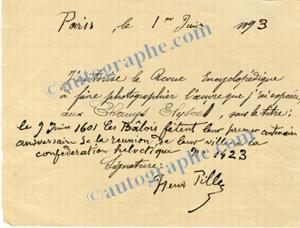 Paris, le 1er Juin 1893
J'autorise la Revue Encyclopédique
à faire photographier l'œuvre que j'ai exposée
aux Champs Elysées, sous le titre:
le 9 Juin 1601 les Bâlois fêtent leur premier centenaire
anniversaire de la réunion de leur ville à la
confédération helvétique No 1423
Signature:
Henri Pille
© autographe.com
© autographe.com
© autographe.com